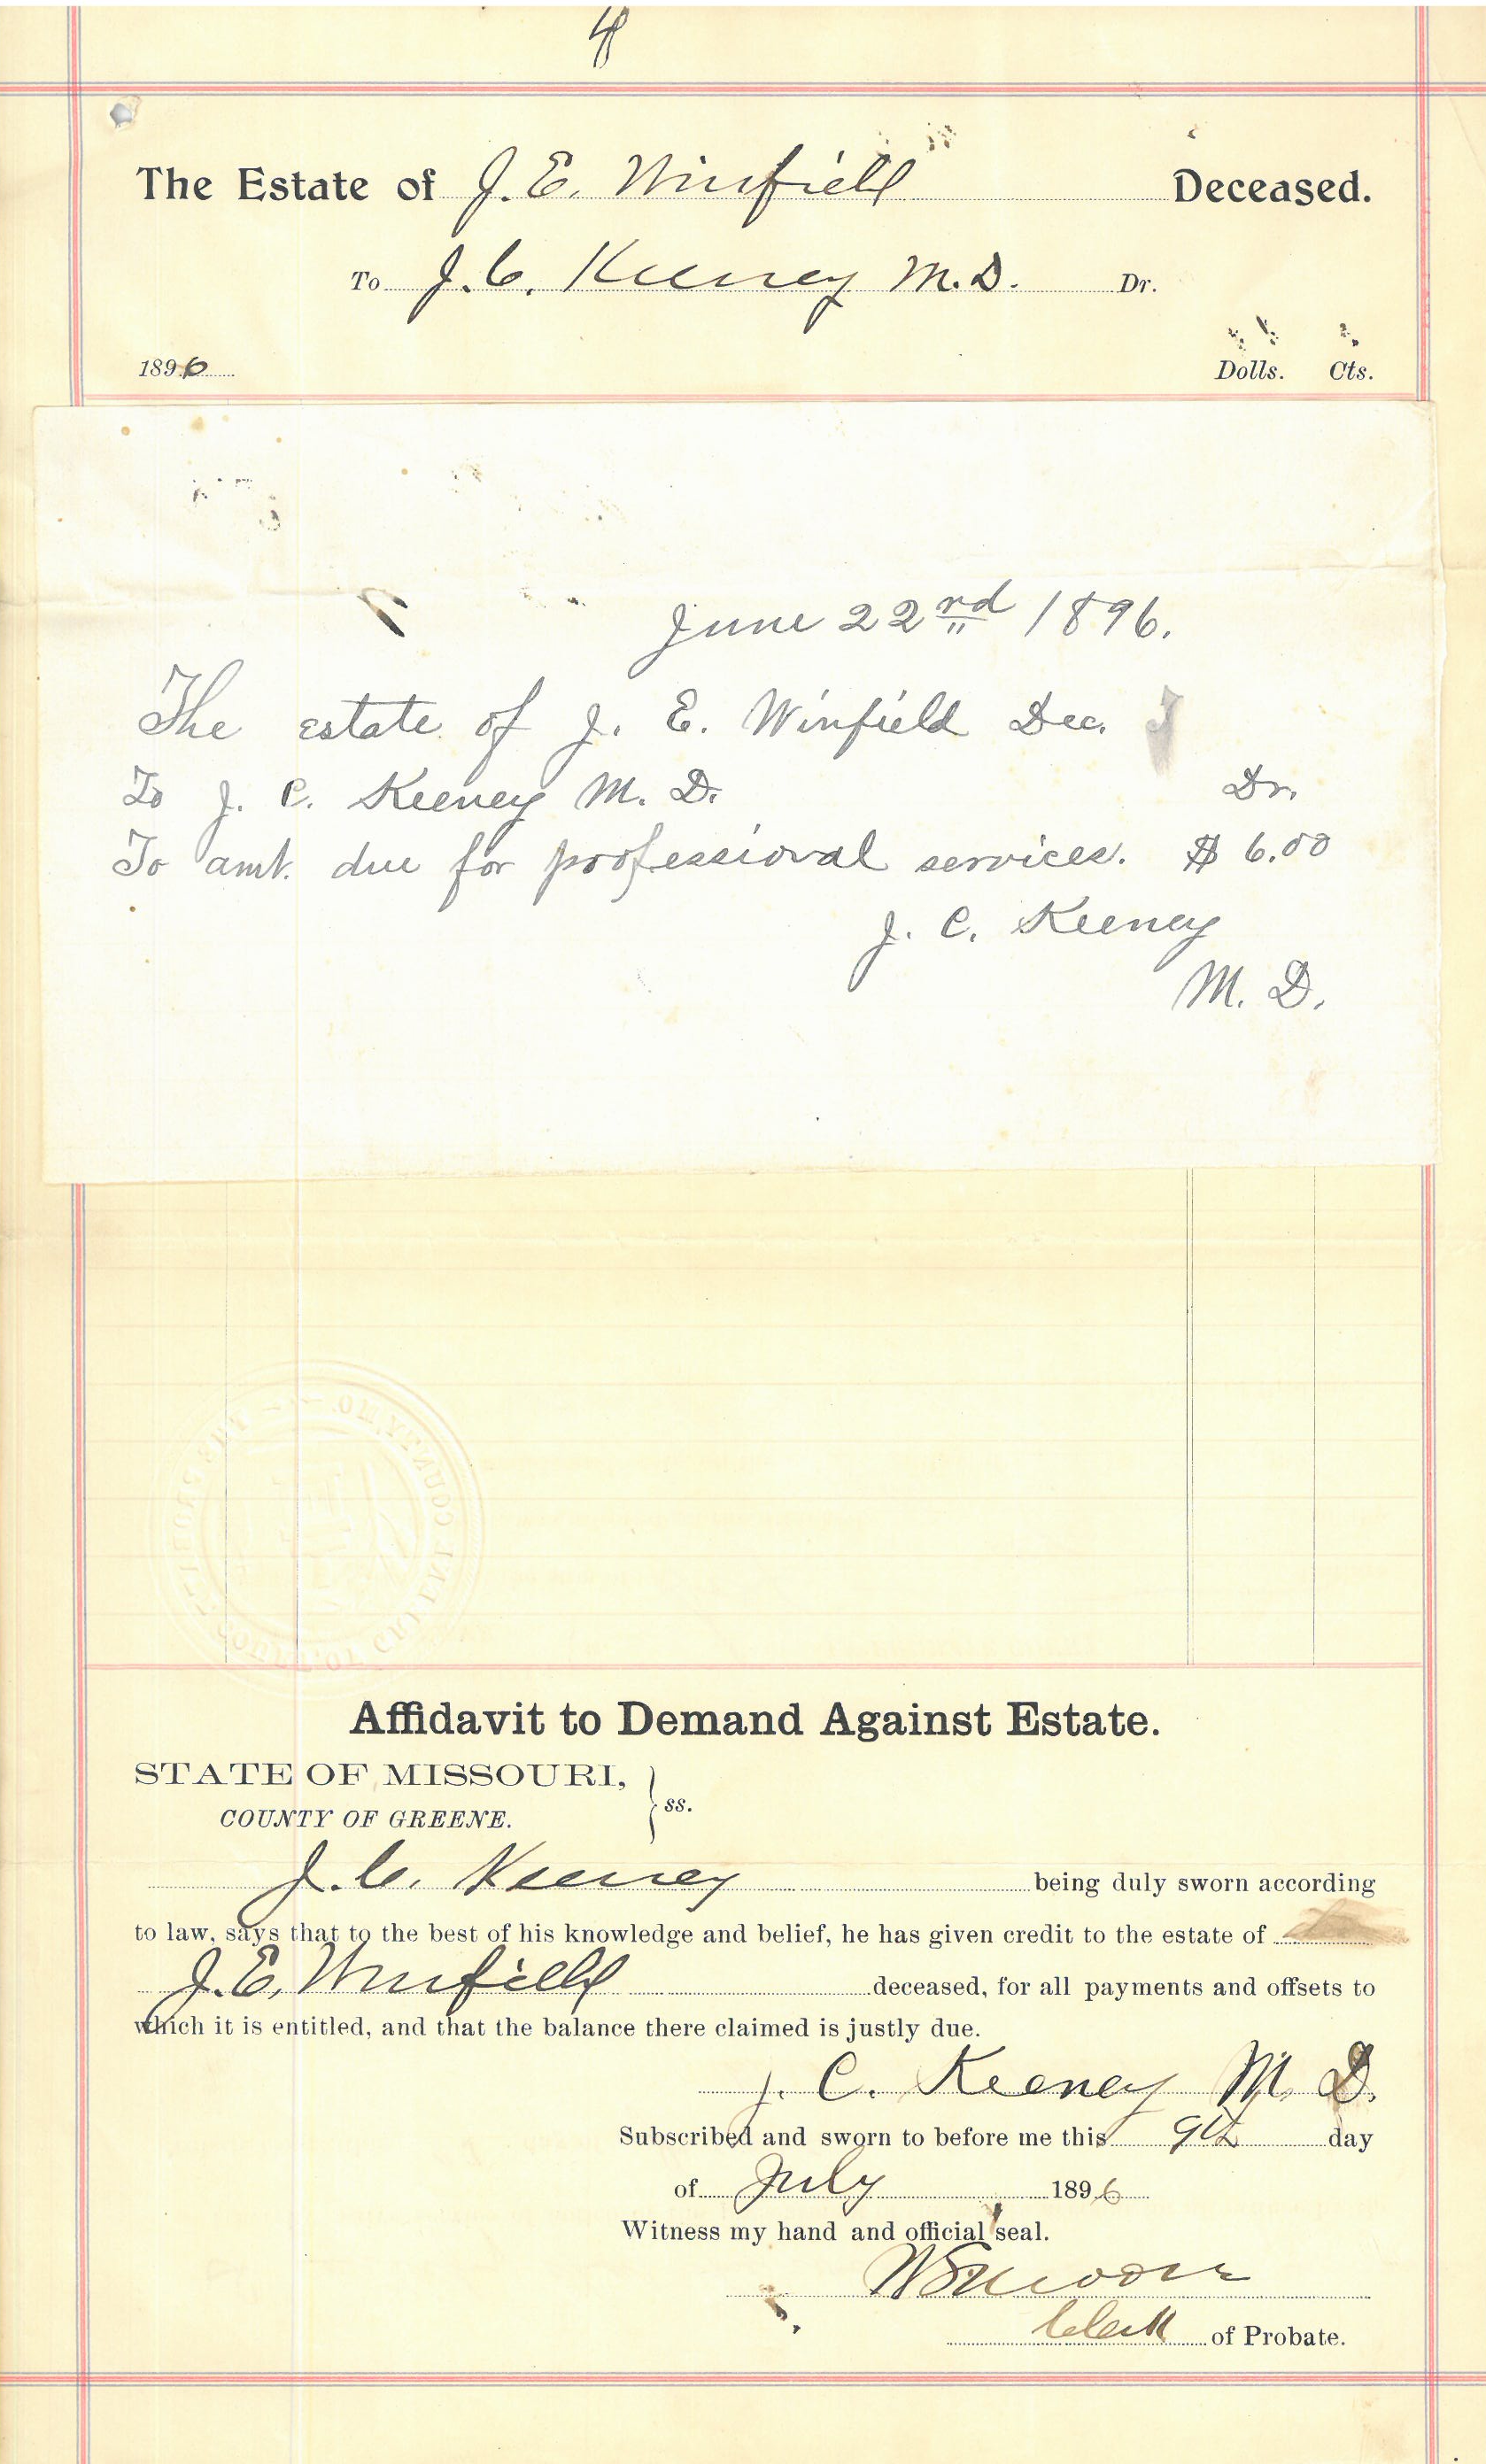 4
The Estate of J. E. Winfield Deceased.
To J. C. Keeney M. D. Dr.
1896 Dolls. Cts.
June 22nd 1896.
The estate of J. E. Winfield Dec.
To J. C. Keeney M. D. Dr.
To amt. due for professional services. $ 6.00
J. C. Keeney
M. D.
Affidavit to Demand Against Estate.
STATE OF MISSOURI,
COUNTY OF GREENE. } ss.
J. C. Keeney being duly sworn according
to law, says that to the best of his knowledge and belief, he has given credit to the estate of
J. E. Winfield deceased, for all payments and offsets to
which it is entitled, and that the balance there claimed is justly due.
J. C. Keeney M. D.
Subscribed and sworn to before me this 9th day
of July 1896
Witness my hand and official seal.
Clerk of Probate.